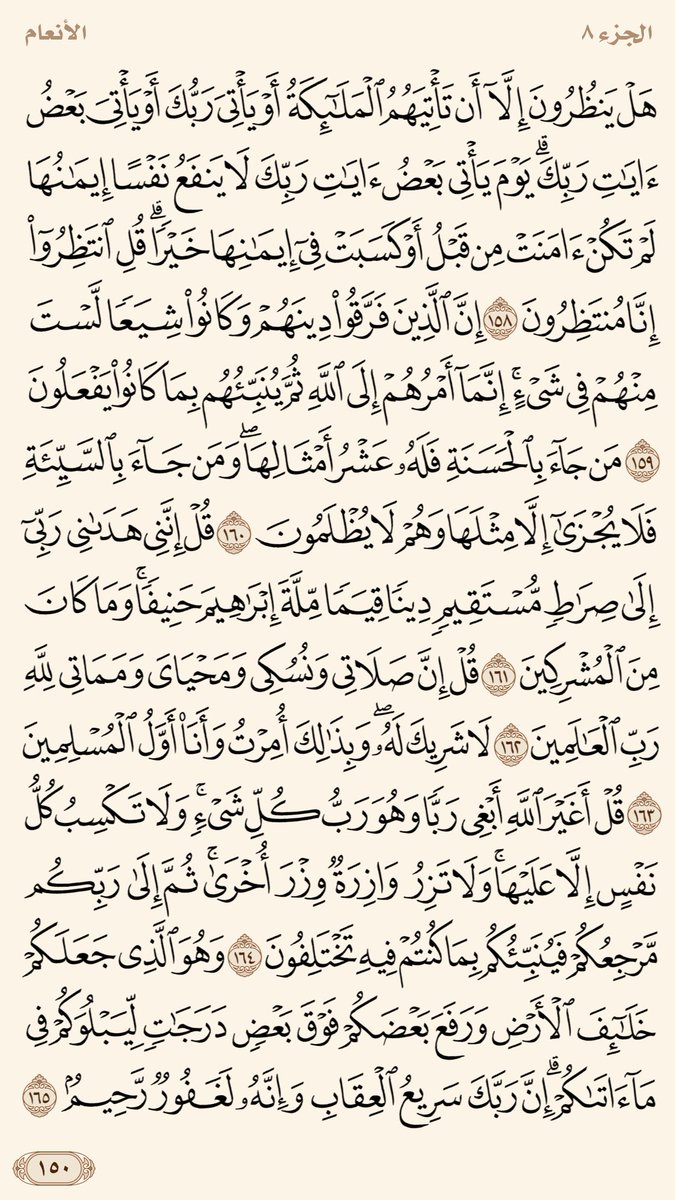 الجزء ٨
الأنعام
هَلْ يَنظُرُونَ إِلَّآ أَن تَأْتِيَهُمُ ٱلْمَلَـٰٓئِكَةُ أَوْ يَأْتِىَ رَبُّكَ أَوْ يَأْتِىَ بَعْضُ
ءَايَـٰتِ رَبِّكَ ۗ يَوْمَ يَأْتِى بَعْضُ ءَايَـٰتِ رَبِّكَ لَا يَنفَعُ نَفْسًا إِيمَـٰنُهَا
لَمْ تَكُنْ ءَامَنَتْ مِن قَبْلُ أَوْ كَسَبَتْ فِىٓ إِيمَـٰنِهَا خَيْرًا ۗ قُلِ ٱنتَظِرُوٓا۟
إِنَّا مُنتَظِرُونَ ١٥٨ إِنَّ ٱلَّذِينَ فَرَّقُوا۟ دِينَهُمْ وَكَانُوا۟ شِيَعًا لَّسْتَ
مِنْهُمْ فِى شَىْءٍ ۚ إِنَّمَآ أَمْرُهُمْ إِلَى ٱللَّهِ ثُمَّ يُنَبِّئُهُم بِمَا كَانُوا۟ يَفْعَلُونَ
١٥٩ مَن جَآءَ بِٱلْحَسَنَةِ فَلَهُۥ عَشْرُ أَمْثَالِهَا ۖ وَمَن جَآءَ بِٱلسَّيِّئَةِ
فَلَا يُجْزَىٰٓ إِلَّا مِثْلَهَا وَهُمْ لَا يُظْلَمُونَ ١٦٠ قُلْ إِنَّنِى هَدَىٰنِى رَبِّىٓ
إِلَىٰ صِرَٰطٍ مُّسْتَقِيمٍ دِينًا قِيَمًا مِّلَّةَ إِبْرَٰهِيمَ حَنِيفًا ۚ وَمَا كَانَ
مِنَ ٱلْمُشْرِكِينَ ١٦١ قُلْ إِنَّ صَلَاتِى وَنُسُكِى وَمَحْيَاىَ وَمَمَاتِى لِلَّهِ
رَبِّ ٱلْعَـٰلَمِينَ ١٦٢ لَا شَرِيكَ لَهُۥ ۖ وَبِذَٰلِكَ أُمِرْتُ وَأَنَا۠ أَوَّلُ ٱلْمُسْلِمِينَ
١٦٣ قُلْ أَغَيْرَ ٱللَّهِ أَبْغِى رَبًّا وَهُوَ رَبُّ كُلِّ شَىْءٍ ۚ وَلَا تَكْسِبُ كُلُّ
نَفْسٍ إِلَّا عَلَيْهَا ۚ وَلَا تَزِرُ وَازِرَةٌ وِزْرَ أُخْرَىٰ ۚ ثُمَّ إِلَىٰ رَبِّكُم
مَّرْجِعُكُمْ فَيُنَبِّئُكُم بِمَا كُنتُمْ فِيهِ تَخْتَلِفُونَ ١٦٤ وَهُوَ ٱلَّذِى جَعَلَكُمْ
خَلَـٰٓئِفَ ٱلْأَرْضِ وَرَفَعَ بَعْضَكُمْ فَوْقَ بَعْضٍ دَرَجَـٰتٍ لِّيَبْلُوَكُمْ فِى
مَآ ءَاتَىٰكُمْ ۗ إِنَّ رَبَّكَ سَرِيعُ ٱلْعِقَابِ وَإِنَّهُۥ لَغَفُورٌ رَّحِيمٌۢ ١٦٥
١٥٠